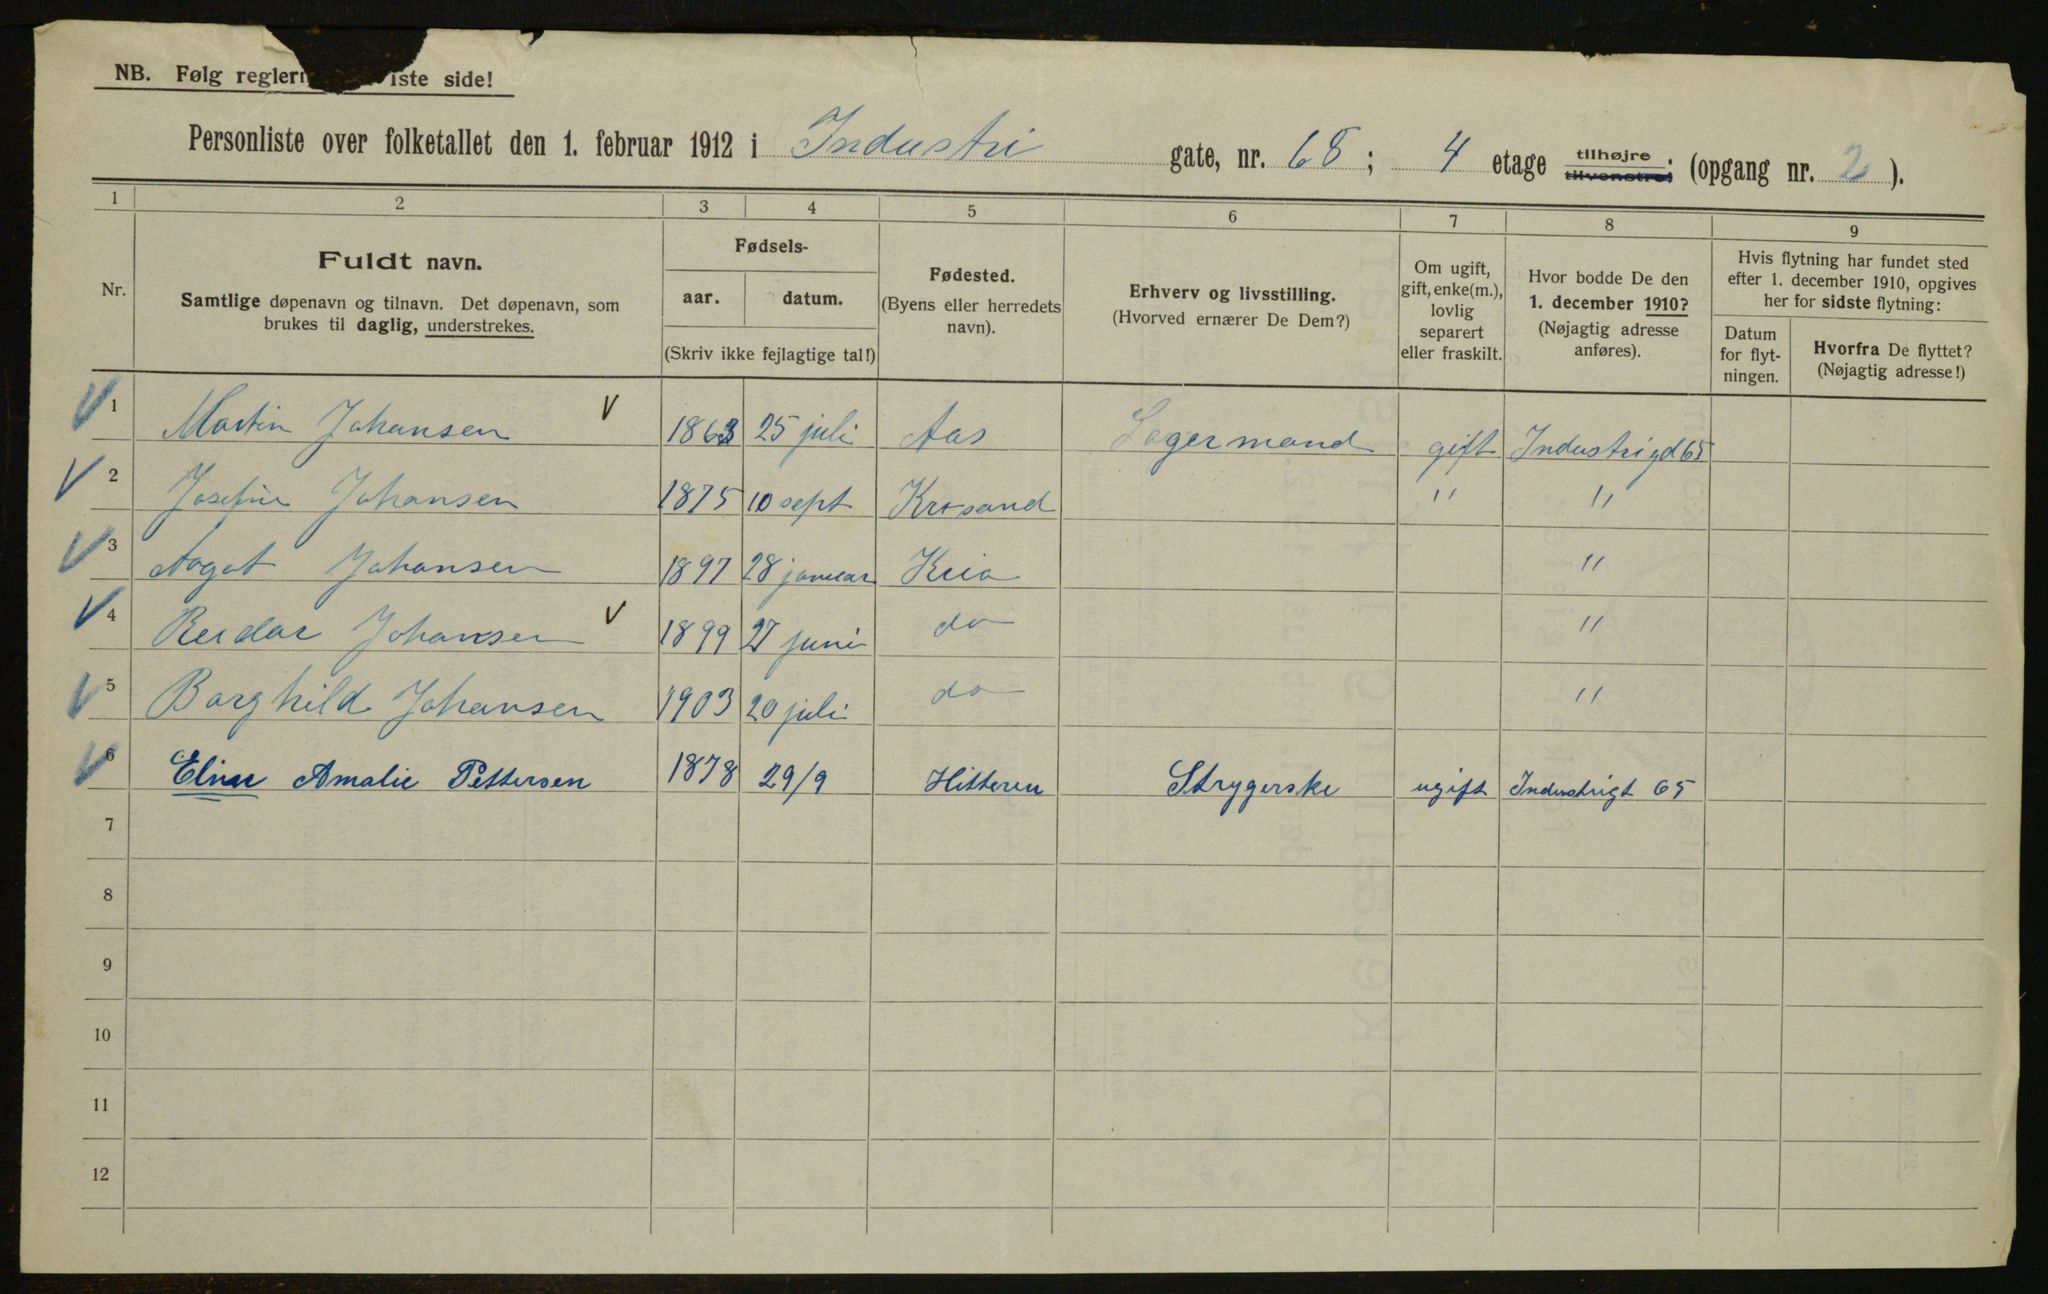 NB. Følg reglern iste side!
Personliste over folketallet den 1. februar 1912 i Industri gate, nr. 68; 4 etage tilhøjre. tilvenstre. (opgang nr. 2).
1 2 3 4 5 6 7 8 9
Nr.
Fuldt navn.
Samtlige døpenavn og tilnavn. Det døpenavn, som
brukes til daglig, understrekes.
Fødsels-
aar. datum.
(Skriv ikke fejlagtige tal!)
Fødested.
(Byens eller herredets
navn).
Erhverv og livsstilling.
(Hvorved ernærer De Dem?)
Om ugift,
gift, enke(m.),
lovlig
separert
eller fraskilt.
Hvor bodde De den
1. december 1910?
(Nøjagtig adresse
anføres).
Hvis flytning har fundet sted
efter 1. december 1910, opgives
her for sidste flytning:
Datum
for flyt-
ningen.
Hvorfra De flyttet?
(Nøjagtig adresse!)
1 Martin Johansen 1863 25 juli Aas Lagermand gift Industrigd 65
2 Josefine Johansen 1875 10 sept Krsand " "
3 Aagot Johansen 1897 28 januar Kria "
4 Reidar Johansen 1899 27 juni do "
5 Borghild Johansen 1903 20 juli do "
6 Eline Amalie Pettersen 1878 29/9 Hitteren Strygerske ugift Industrigt 65
7
8
9
10
11
12